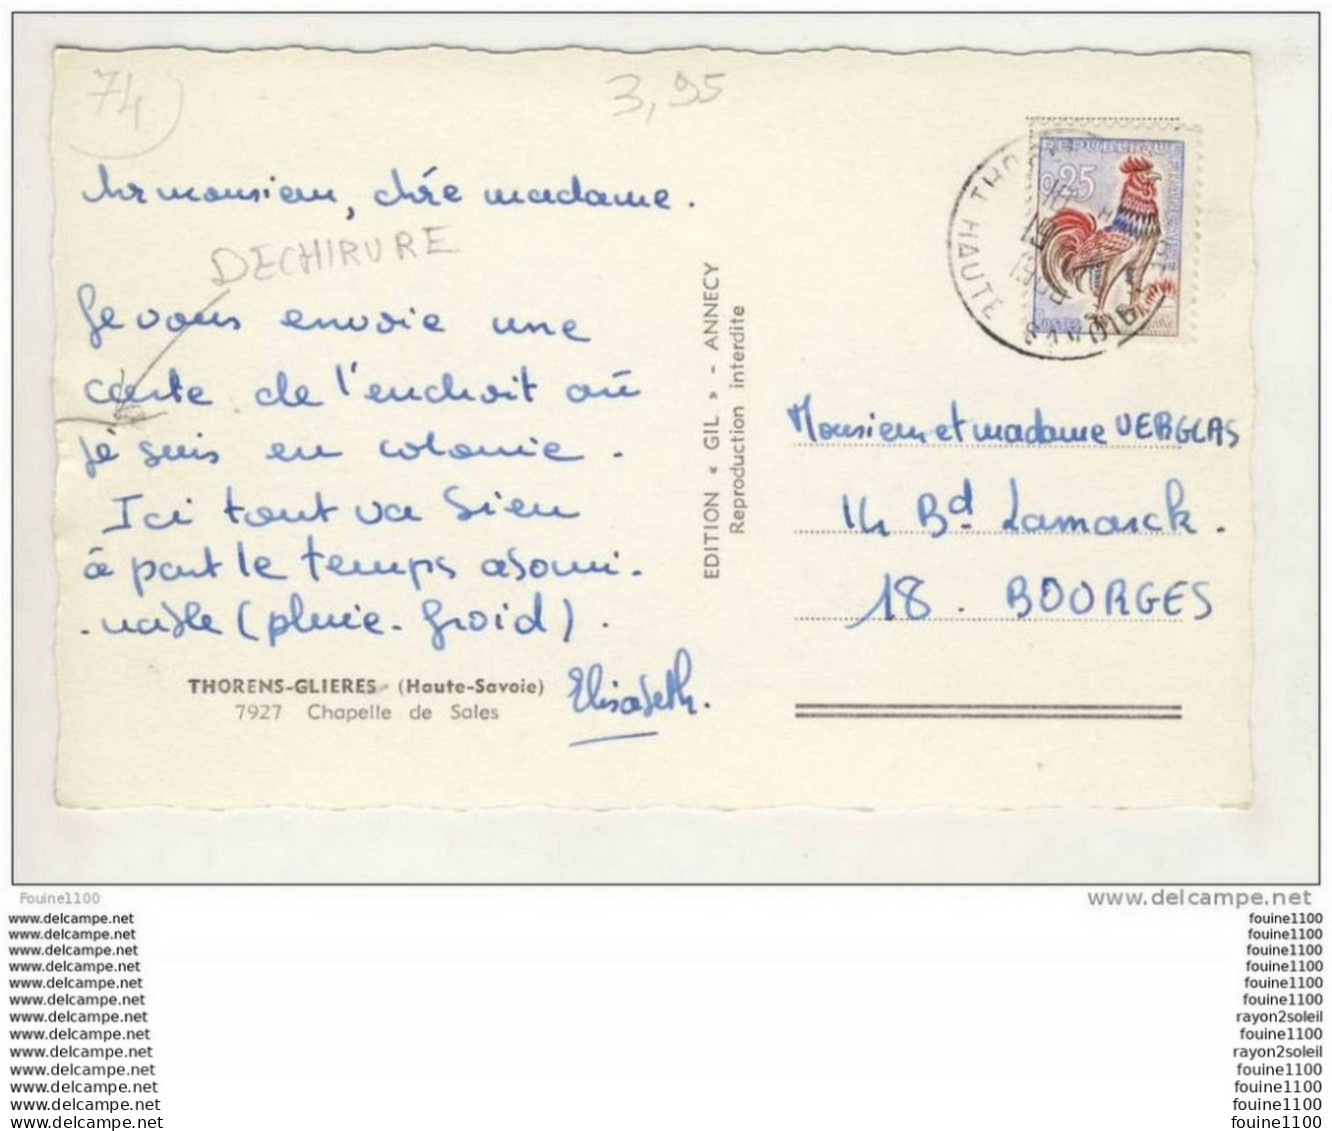 74
3,95
monsieur, chère madame.
DECHIRURE
Je vous envoie une
carte de l'endroit où
je suis en colonie.
Ici tout va bien
à part le temps abomi-
-nable (pluie - froid).
Elisabeth.
THORENS-GLIERES - (Haute-Savoie)
7927 Chapelle de Sales
EDITION « GIL » - ANNECY
Reproduction interdite
REPUBLIQUE FRANÇAISE
0,25
POSTES
HAUTE SAVOIE
Monsieur et madame VERGLAS
14 Bd Lamarck.
18. BOURGES
Fouine1100
www.delcampe.net
www.delcampe.net
fouine1100
www.delcampe.net
fouine1100
www.delcampe.net
fouine1100
www.delcampe.net
fouine1100
www.delcampe.net
fouine1100
www.delcampe.net
fouine1100
www.delcampe.net
rayon2soleil
www.delcampe.net
fouine1100
www.delcampe.net
rayon2soleil
www.delcampe.net
fouine1100
www.delcampe.net
fouine1100
www.delcampe.net
fouine1100
www.delcampe.net
fouine1100